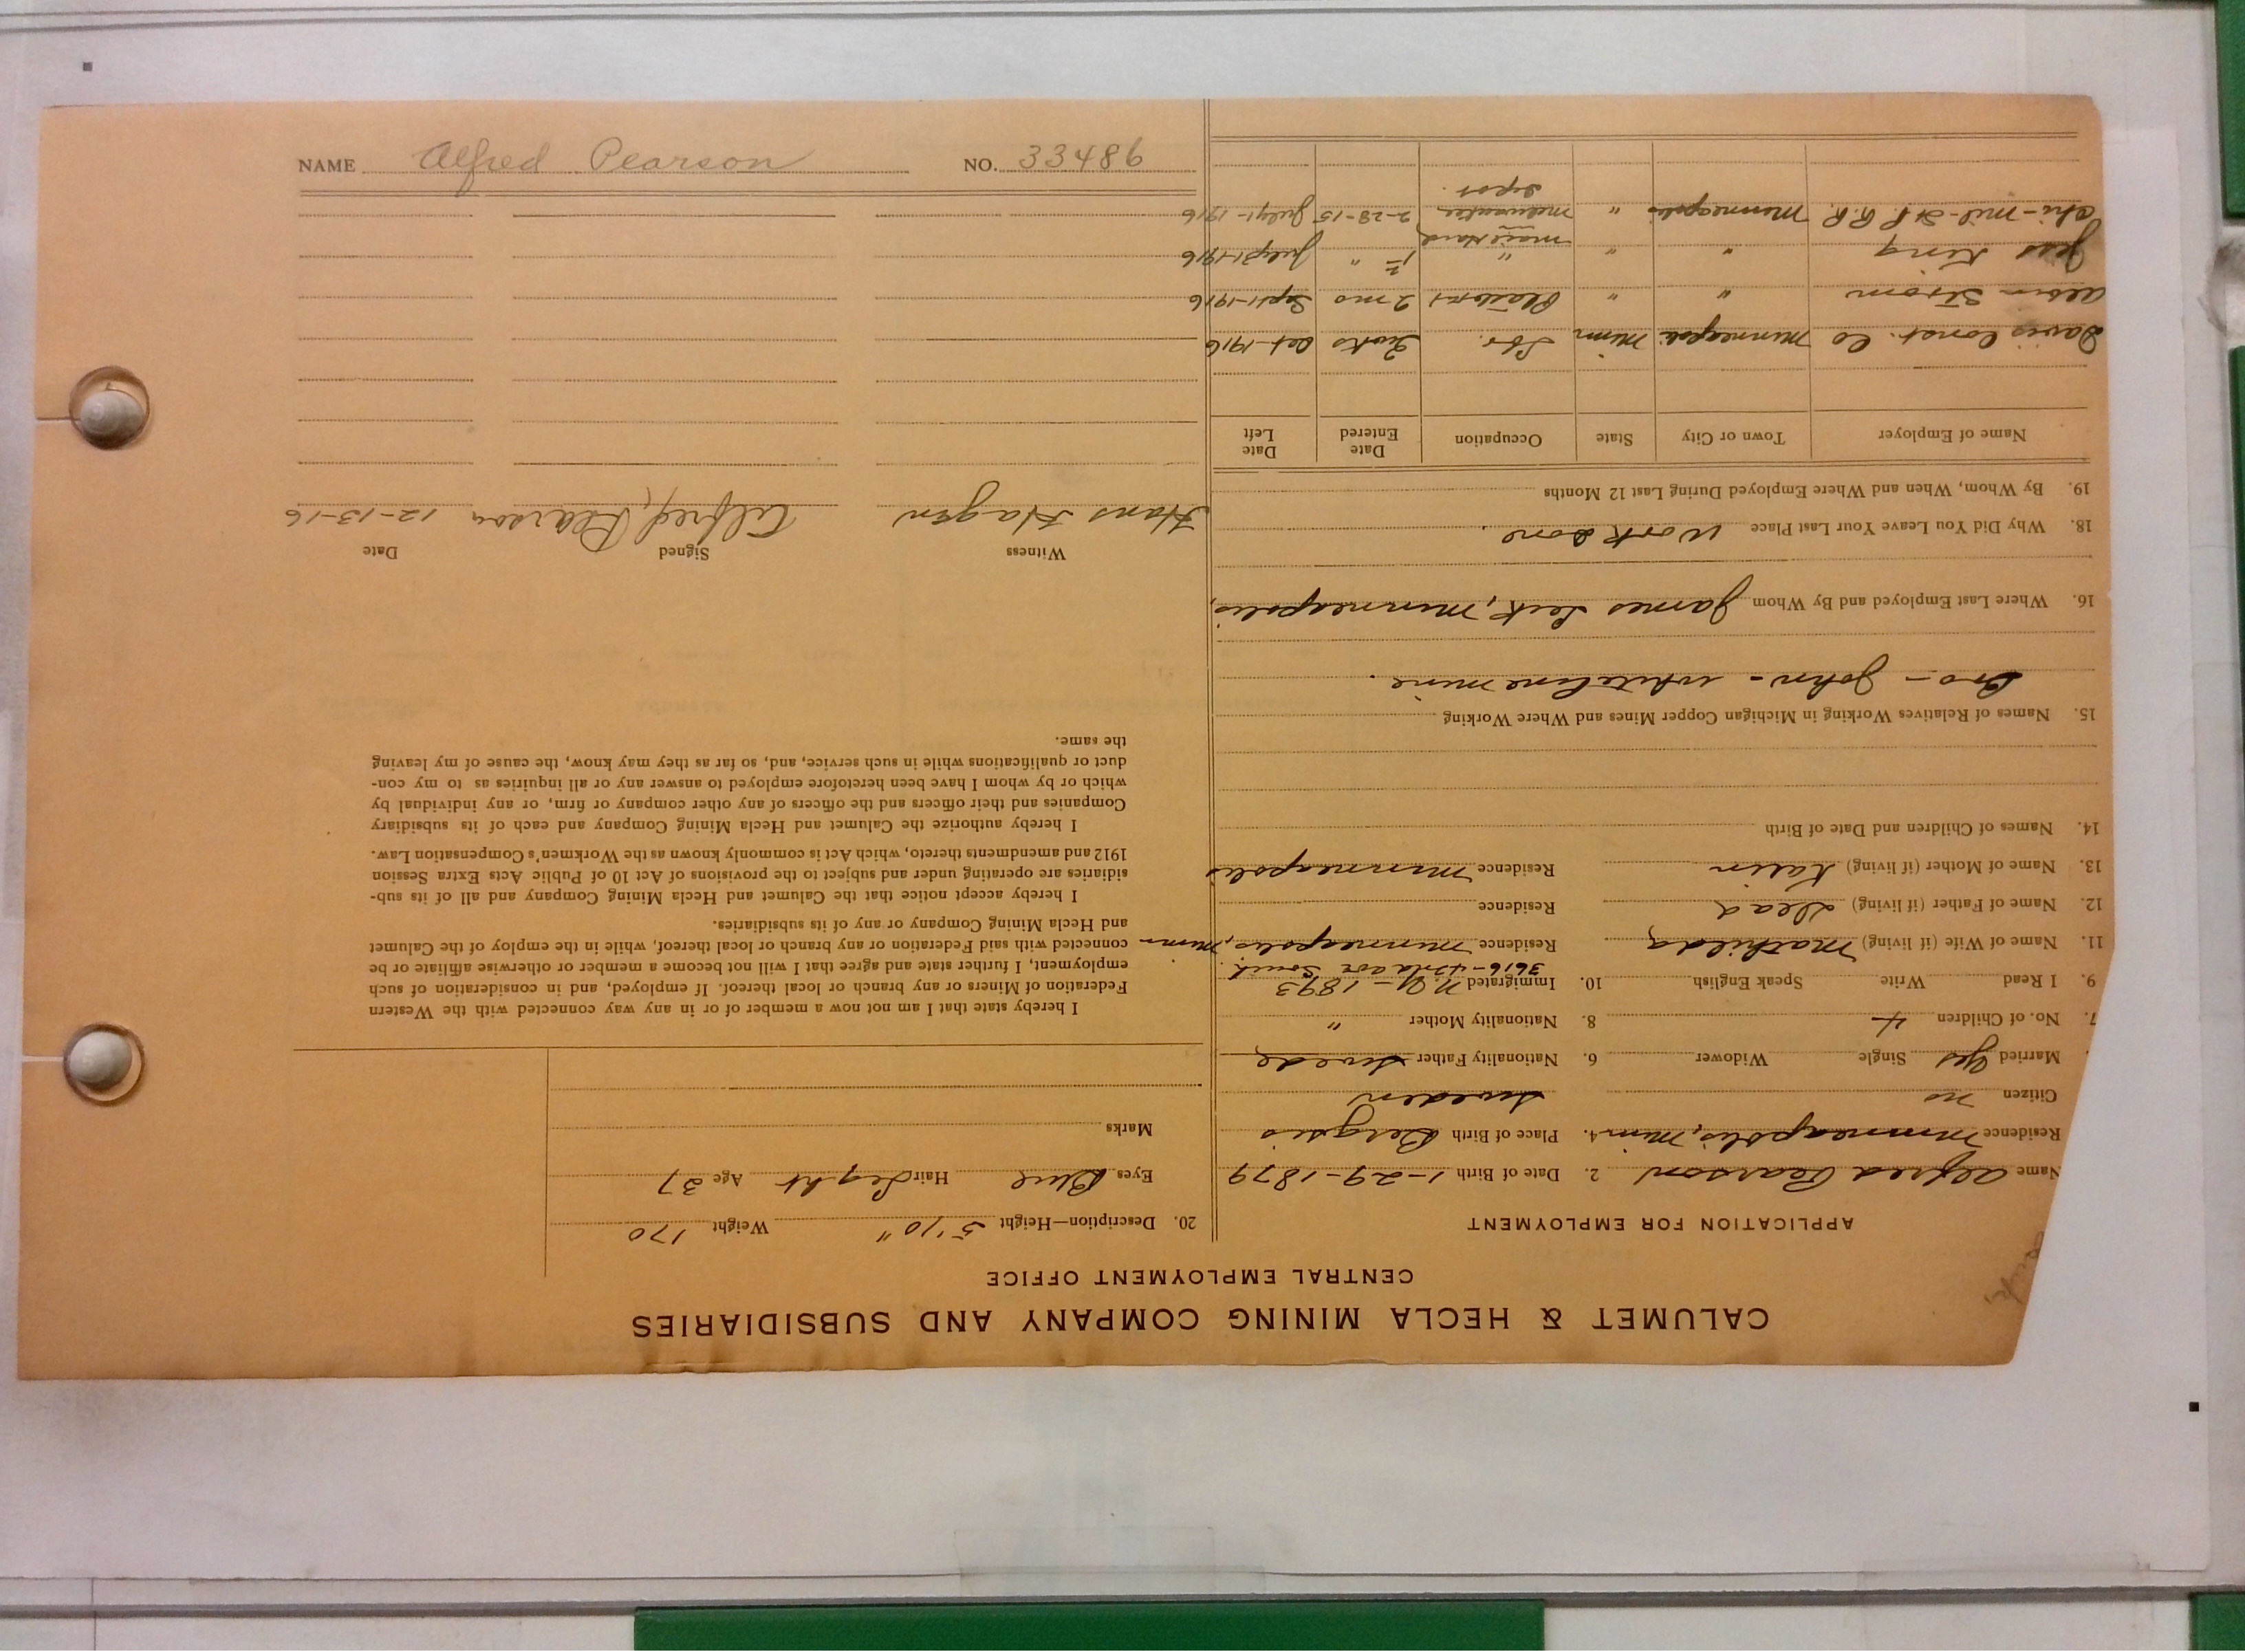 NAME Alfred Pearson NO. 33486
CALUMET & HECLA MINING COMPANY AND SUBSIDIARIES
CENTRAL EMPLOYMENT OFFICE
APPLICATION FOR EMPLOYMENT
Name Alfred Pearson 2. Date of Birth 1-29-1879
Residence Minneapolis, Minn. 4. Place of Birth
Citizen no Sweden
Married Yes Single Widower 6. Nationality Father Swede
7. No. of Children 4 8. Nationality Mother "
9. I Read Write Speak English 10. Immigrated N.Y - 1893
3616-43rd ave South.
11. Name of Wife (if living) Mathilda Residence Minneapolis, Minn
12. Name of Father (if living) Dead Residence
13. Name of Mother (if living) Residence Minneapolis
14. Names of Children and Date of Birth
15. Names of Relatives Working in Michigan Copper Mines and Where Working
Bro - John - White Pine mine.
16. Where Last Employed and By Whom James Leck, Minneapolis,
18. Why Did You Leave Your Last Place Work done.
19. By Whom, When and Where Employed During Last 12 Months
Name of Employer Town or City State Occupation Date Entered Date Left
Davis Const. Co Minneapolis Minn Lbr. 2 wks Oct-1916
Albin Strom " " 2 mo Sept 1-1916
Jess King " " " July 31-1916
Chi-Mil-St P. R.R. Minneapolis " Milwaukee Depot. 2-28-15 July 1-1916
20. Description—Height 5'10" Weight 170
Eyes Blue Hair Light Age 37
Marks
I hereby state that I am not now a member of or in any way connected with the Western
Federation of Miners or any branch or local thereof. If employed, and in consideration of such
employment, I further state and agree that I will not become a member or otherwise affiliate or be
connected with said Federation or any branch or local thereof, while in the employ of the Calumet
and Hecla Mining Company or any of its subsidiaries.
I hereby accept notice that the Calumet and Hecla Mining Company and all of its sub-
sidiaries are operating under and subject to the provisions of Act 10 of Public Acts Extra Session
1912 and amendments thereto, which Act is commonly known as the Workmen's Compensation Law.
I hereby authorize the Calumet and Hecla Mining Company and each of its subsidiary
Companies and their officers and the officers of any other company or firm, or any individual by
which or by whom I have been heretofore employed to answer any or all inquiries as to my con-
duct or qualifications while in such service, and, so far as they may know, the cause of my leaving
the same.
Witness Signed Date
Hans Hagen Alfred Pearson 12-13-16